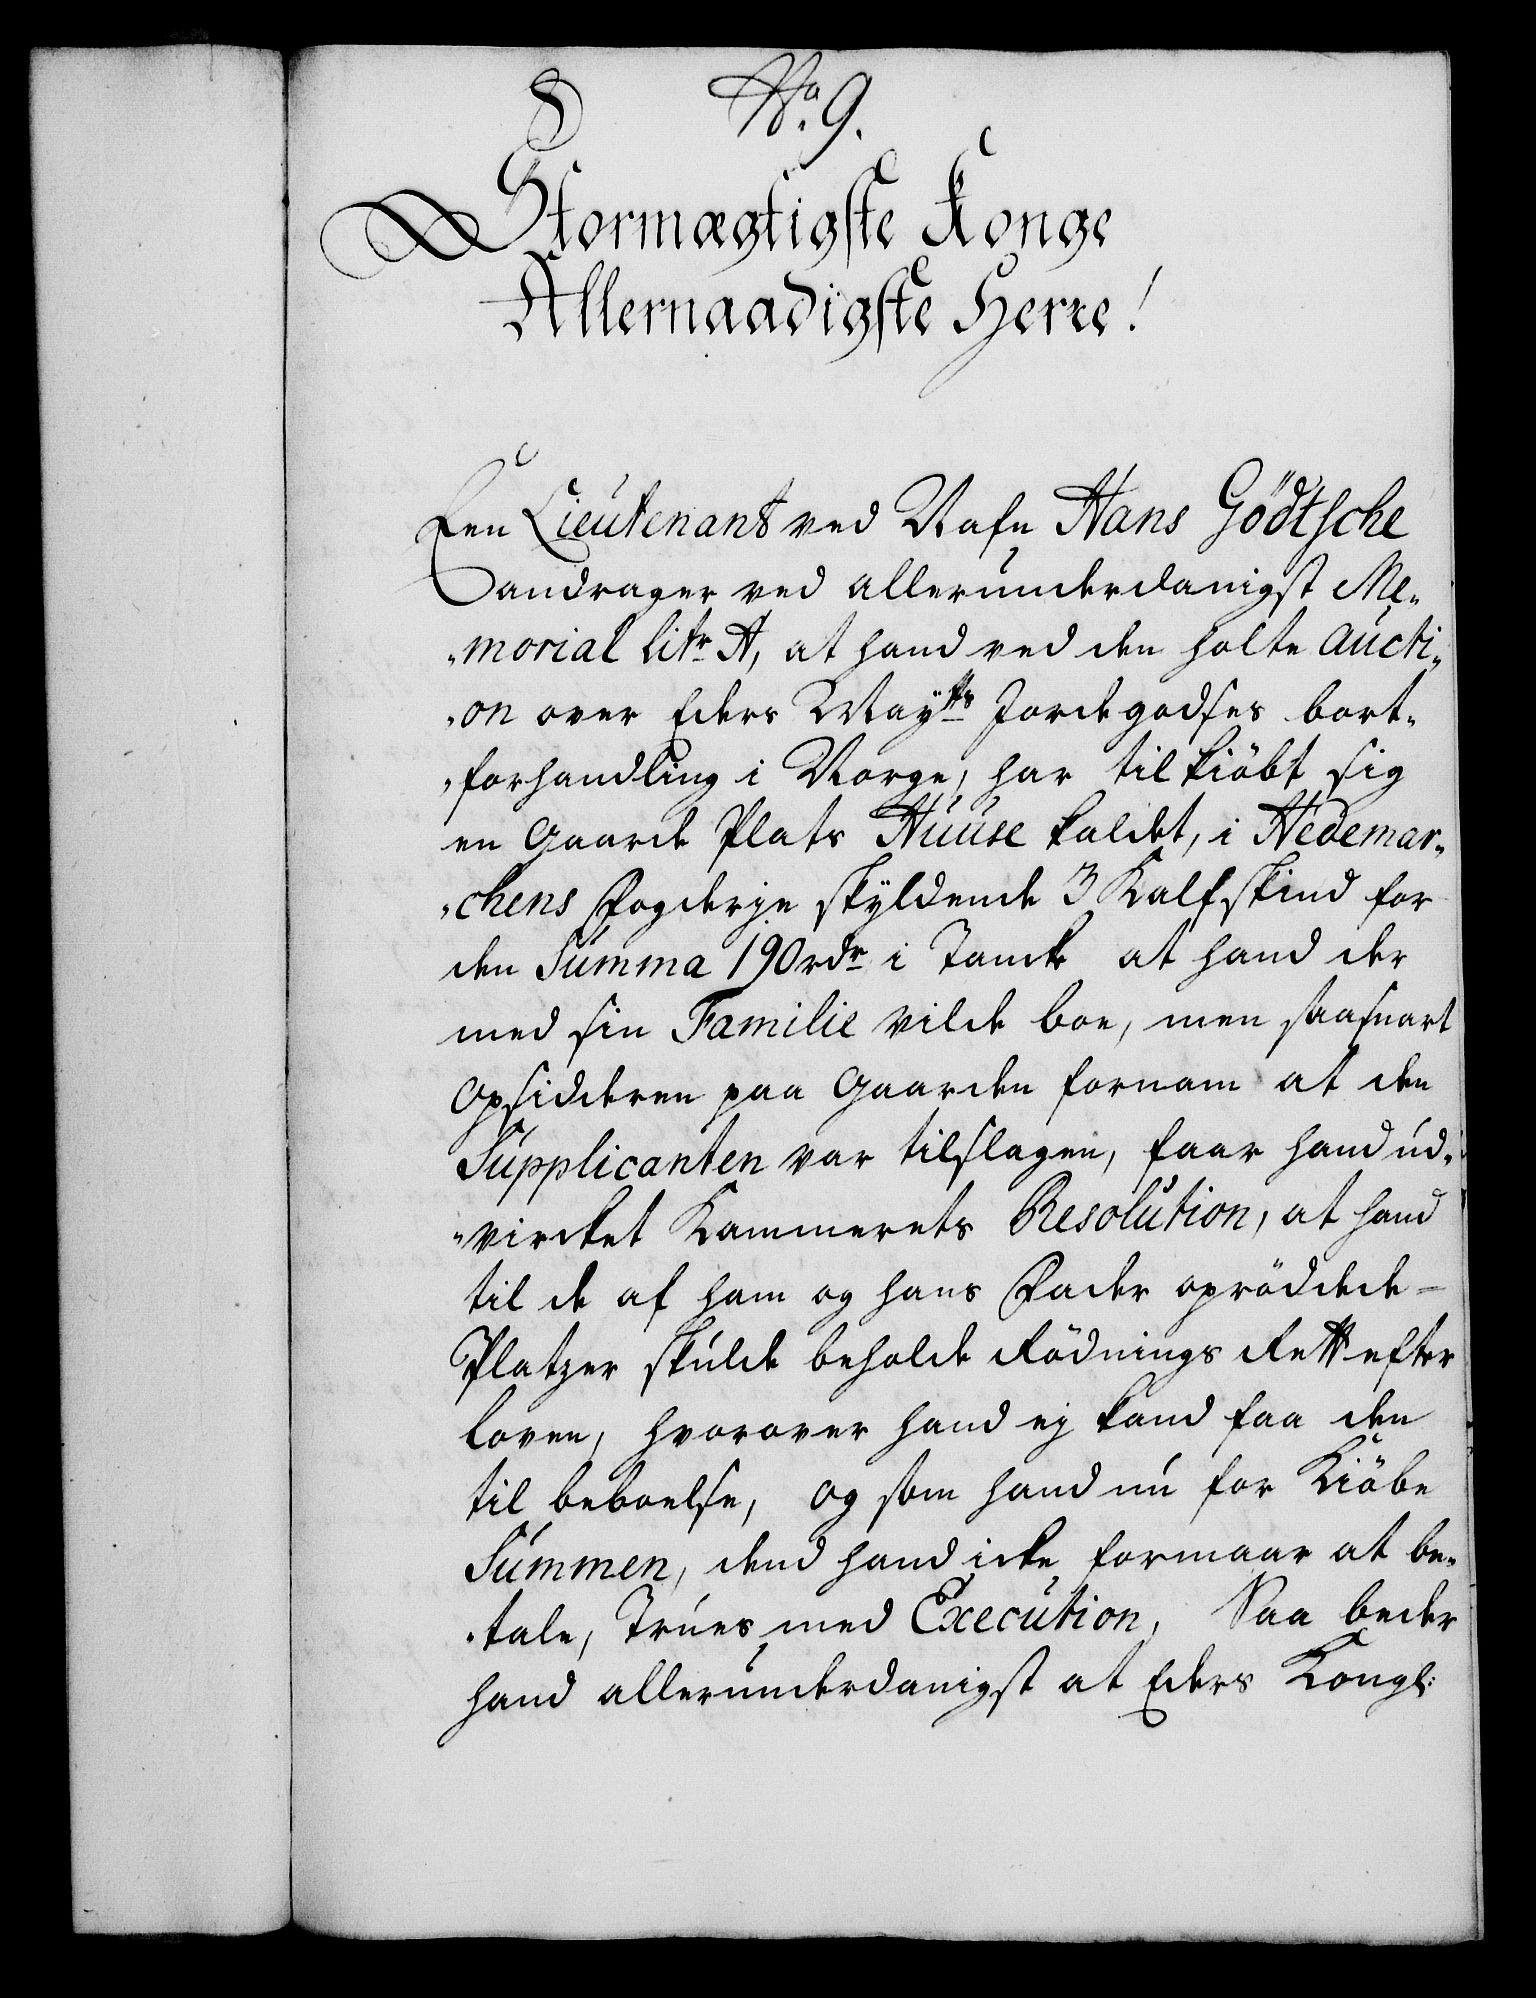 No. 9.
Stormægtigste Konge
Allernaadigste Herre!
Een Lieutenant ved Nafn Hans Gödtsche
andrager ved allerunderdanigst Me-
-morial litr A, at hand ved den holte Aucti-
-on over Eders Mayts Jordegodses bort-
-forhandling i Norge, har tilkiöbt sig
en Gaarde Plats Huuse kaldet, i Hedemar-
-chens Fogderje skyldende 3 Kalfskind for
den Summa 190 rdr i Tancke at hand der
med sin Familie vilde boe, men saasnart
Opsidderen paa Gaarden fornam at den
Supplicanten var tilslagen, faar hand ud-
-vircket Kammerets Resolution, at hand
til de af ham og hans Fader opröddede
Platzer skulde beholde Rödnings Rett efter
Loven, hvorover hand ej kand faa den
til beboelse, og som hand nu for Kiöbe
Summen, dend hand icke formaar at be-
-tale, Trues med Execution, Saa beder
hand allerunderdanigst at Eders Kongl: